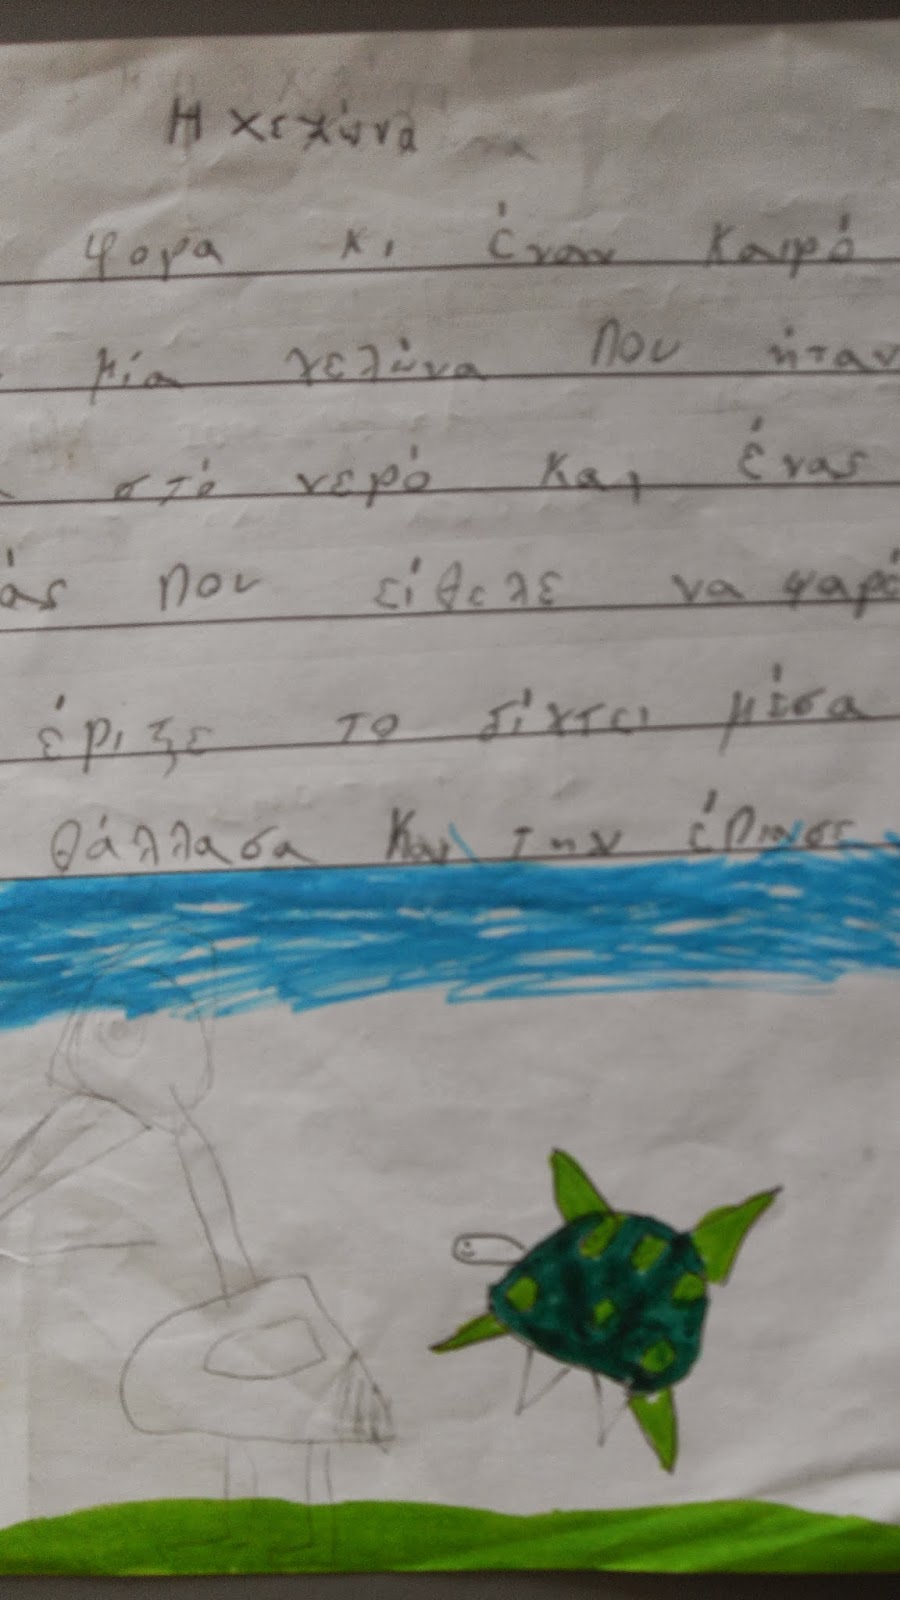 Η χελώνα
φορα κι έναν καιρό
μία χελώνα που ήταν
στό νερό και ένας
άς που είθελε να ψαρέ
έριξε το δίχτει μέσα
θάλλασα και την έπιασε